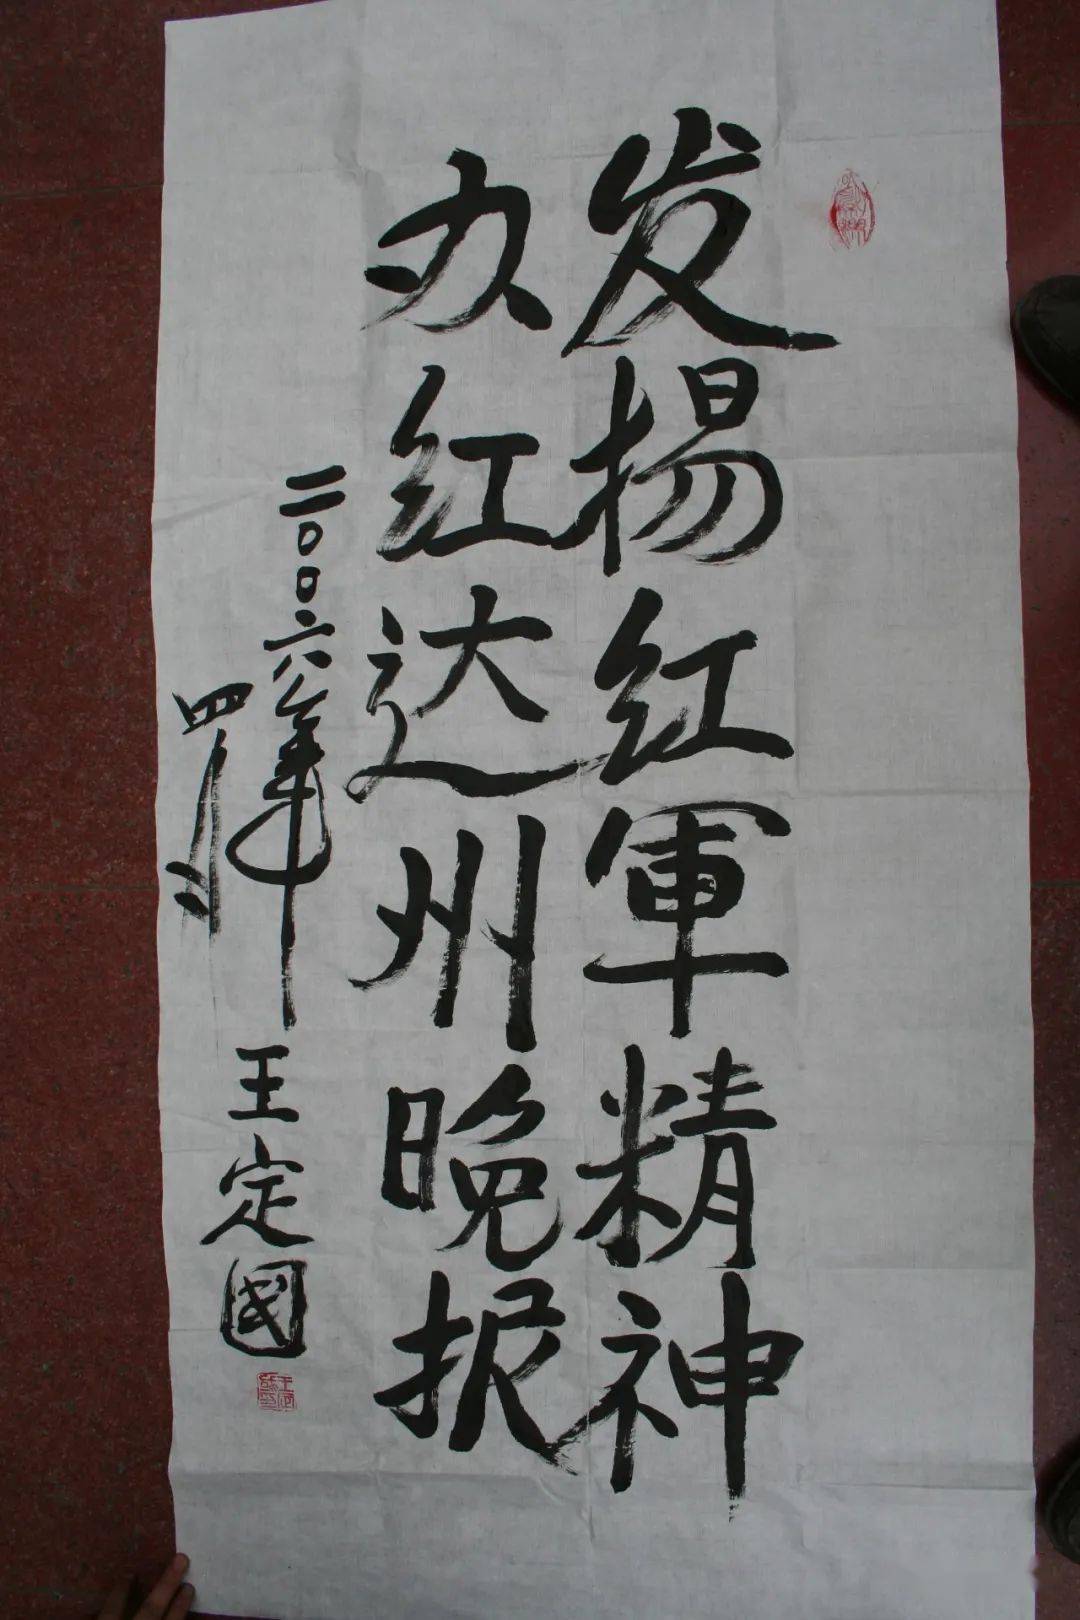 发揚红軍精神
办红达州晚报
二〇〇六年
四月
王定國